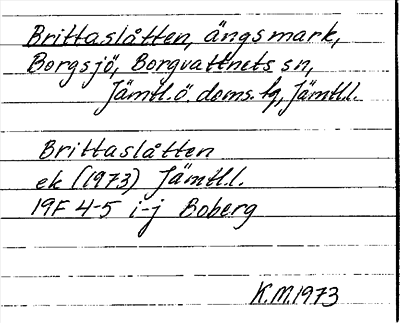 Brittaslåtten, ängsmark,
Borgsjö, Borgvattnets sn,
Jämtl.ö. doms. tg, Jämtl.l.
Brittaslåtten
ek (1973) Jämtl.l.
19F 4-5 i-j Boberg
K.M.1973